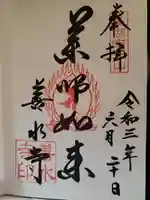 奉拝
令和三年
六月二十日
薬師如来
善水寺